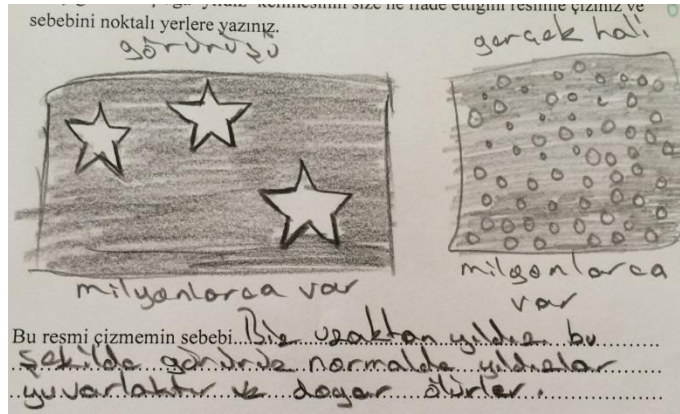 "yıldız" kelimesinin size ne ifade ettiğini resimle çiziniz ve
sebebini noktalı yerlere yazınız.
görünüşü
gerçek hali
milyonlarca var
milyonlarca
var
Bu resmi çizmemin sebebi Biz uzaktan yıldızı bu
şekilde görürüz normalde yıldızlar
yuvarlaktır ve doğar ölürler.